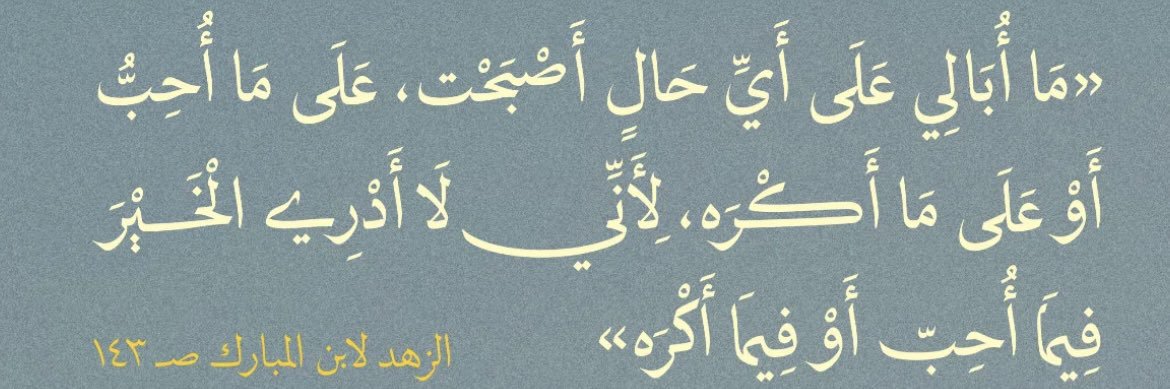 «مَا أُبَالِي عَلَى أَيِّ حَالٍ أَصْبَحْت، عَلَى مَا أُحِبُّ
أَوْ عَلَى مَا أَكْرَه، لِأَنِّي لَا أَدْرِي الْخَيْرَ
فِيمَا أُحِبّ أَوْ فِيمَا أَكْرَه»
الزهد لابن المبارك صـ ١٤٣